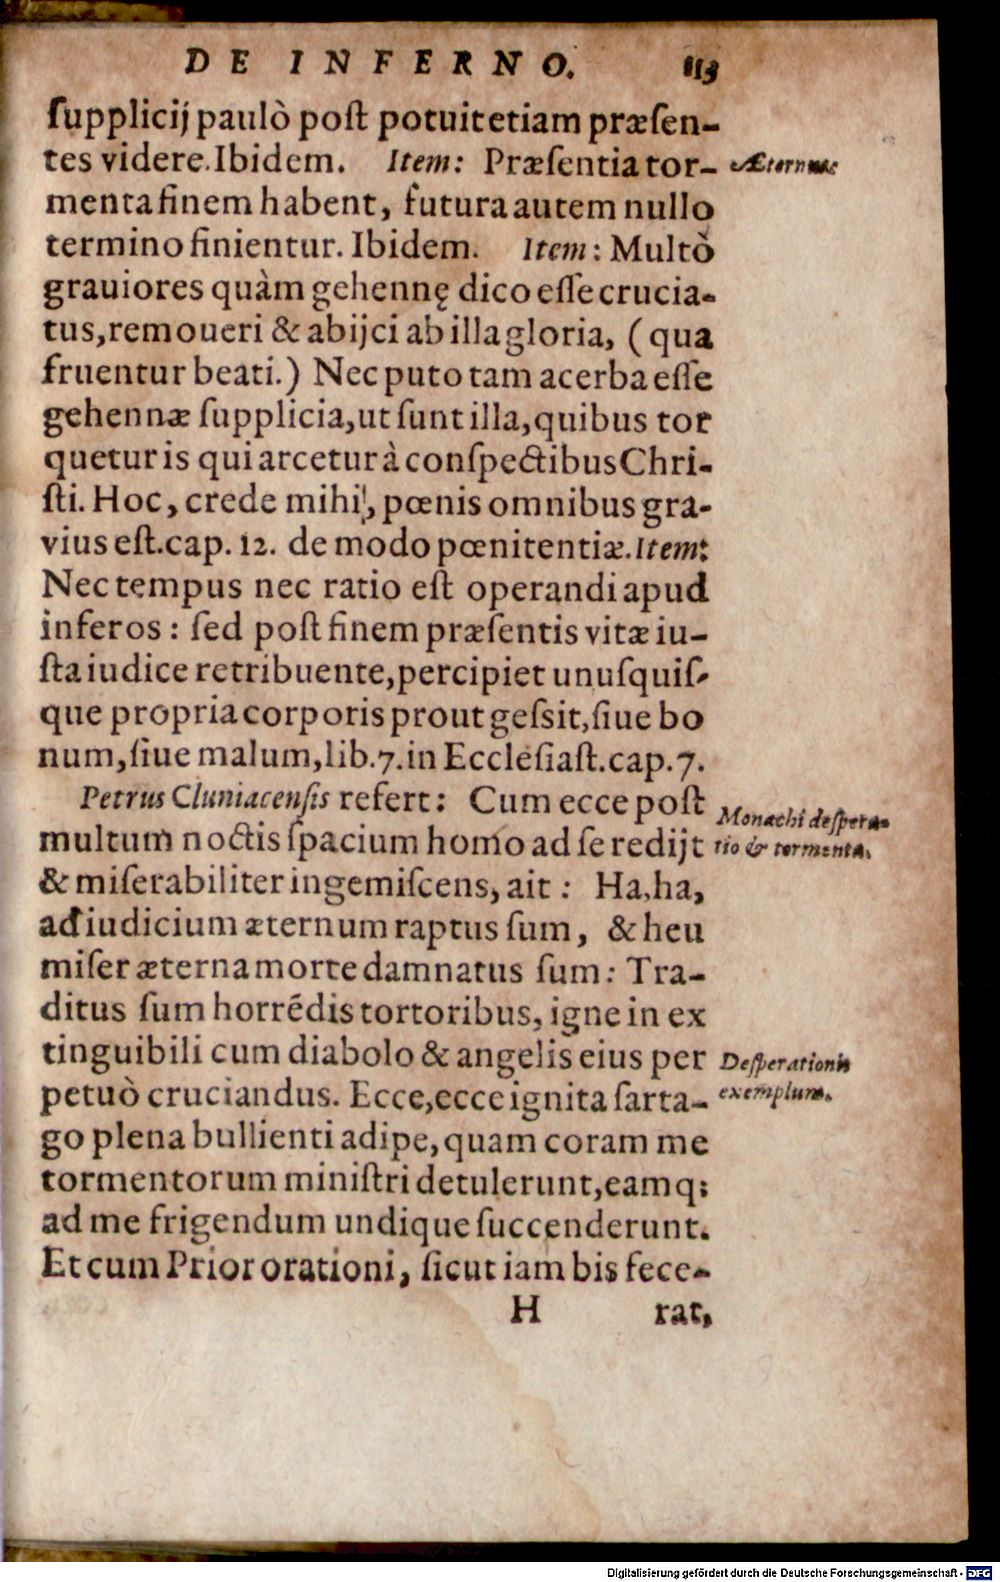 DE INFERNO. 113
ſupplicij paulò poſt potuit etiam præſen-
tes videre. Ibidem. Item: Præſentia tor-
Æternæ
menta finem habent, futura autem nullo
termino finientur. Ibidem. Item: Multò
grauiores quàm gehennę dico eſſe crucia-
tus, remoueri & abijci ab illa gloria, (qua
fruentur beati.) Nec puto tam acerba eſſe
gehennæ ſupplicia, ut ſunt illa, quibus tor
quetur is qui arcetur à conſpectibus Chri-
ſti. Hoc, crede mihi, pœnis omnibus gra-
vius eſt. cap. 12. de modo pœnitentiæ. Item:
Nec tempus nec ratio eſt operandi apud
inferos: ſed poſt finem præſentis vitæ iu-
ſta iudice retribuente, percipiet unuſquiſ-
que propria corporis prout geſsit, ſiue bo
num, ſiue malum, lib. 7. in Eccleſiaſt. cap. 7.
Petrus Cluniacenſis refert: Cum ecce poſt
Monachi deſpera-
multum noctis ſpacium homo ad ſe redijt
tio & tormenta.
& miſerabiliter ingemiſcens, ait: Ha, ha,
ad iudicium æternum raptus ſum, & heu
miſer æterna morte damnatus ſum: Tra-
ditus ſum horrēdis tortoribus, igne in ex
tinguibili cum diabolo & angelis eius per
Deſperationis
petuò cruciandus. Ecce, ecce ignita ſarta-
exemplum.
go plena bullienti adipe, quam coram me
tormentorum miniſtri detulerunt, eamq;
ad me frigendum undique ſuccenderunt.
Et cum Prior orationi, ſicut iam bis fece-
H rat,
Digitalisierung gefördert durch die Deutsche Forschungsgemeinschaft - DFG